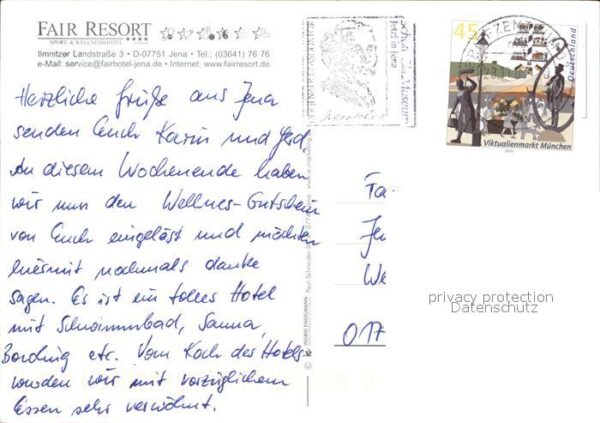 FAIR RESORT
SPORT- & WELLNESSHOTEL ★★★★
Ilmnitzer Landstraße 3 • D-07751 Jena • Tel.: (03641) 76 76
e-Mail: service@fairhotel-jena.de • Internet: www.fairresort.de
Herzliche Grüße aus Jena
senden Euch Karin und Gerd.
An diesem Wochenende haben
wir nun den Wellnes-Gutschein
von Euch eingelöst und möchten
hiermit nochmals danke
sagen. Es ist ein tolles Hotel
mit Schwimmbad, Sauna,
Bording etc. Vom Koch des Hotels
wurden wir mit vorzüglichem
Essen sehr verwöhnt.
45
Deutschland
Viktualienmarkt München
Fa
Je
We
017
privacy protection
Datenschutz
INGRID ENGELMANN
Paul-Schneider